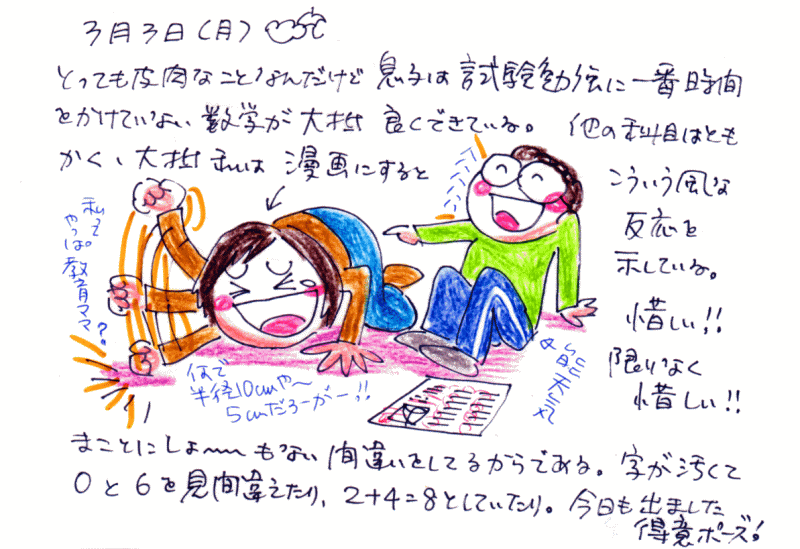 3月3日(月)
とっても皮肉なことなんだけど 息子は 試験勉強に 一番時間
をかけていない 数学が 大樹 良くできている。 他の科目はとも
かく、大樹 私は 漫画にすると
こういう風な
反応を
示している。
惜しい!!
限りなく
惜しい!!
私って
やっぱ教育ママ
?
何で
半径10cmや〜
5cmだろーがー!!
今日
まことにしょ〜もない間違いをしてるからである。字が汚くて
0と6を見間違えたり、2+4=8としていたり。今日も出ました
得意ポーズ!